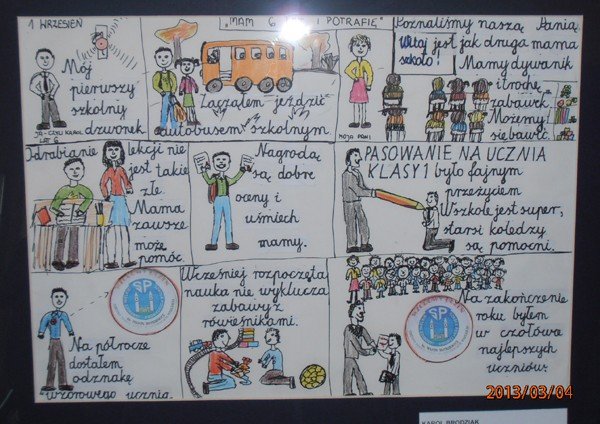 1 WRZESIEŃ
"MAM 6 I POTRAFIĘ"
Mój
pierwszy
szkolny
dzwonek
JA - CZYLI KAROL
LAT 6
Zacząłem jeździć
autobusem szkolnym
MOJA PANI
Witaj
szkoło!
Poznaliśmy naszą Panią
jest jak druga mama
Mamy dywanik
i trochę
zabawek
Możemy
się bawić
Odrabianie
lekcji nie
jest takie
złe.
Mama
zawsze
może
pomóc.
Nagrodą
są dobre
oceny i
uśmiech
mamy.
PASOWANIE NA UCZNIA
KLASY 1 było fajnym
przeżyciem
W szkole jest super,
starsi koledzy
są pomocni.
SP
Na półrocze
dostałem
odznakę
wzorowego ucznia.
Wcześniej rozpoczęta
nauka nie wyklucza
zabawy z
rówieśnikami.
SP
Na zakończenie
roku byłem
w czołówce
najlepszych
uczniów.
2013/03/04
KAROL BRODZIAK